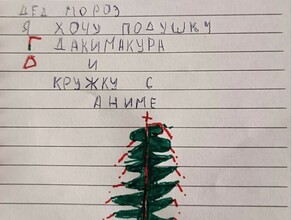 ДЕД МОРОЗ
Я ХОЧУ ПОДУШКУ
ДАКИМАКУРА
И
КРУЖКУ С
АНИМЕ